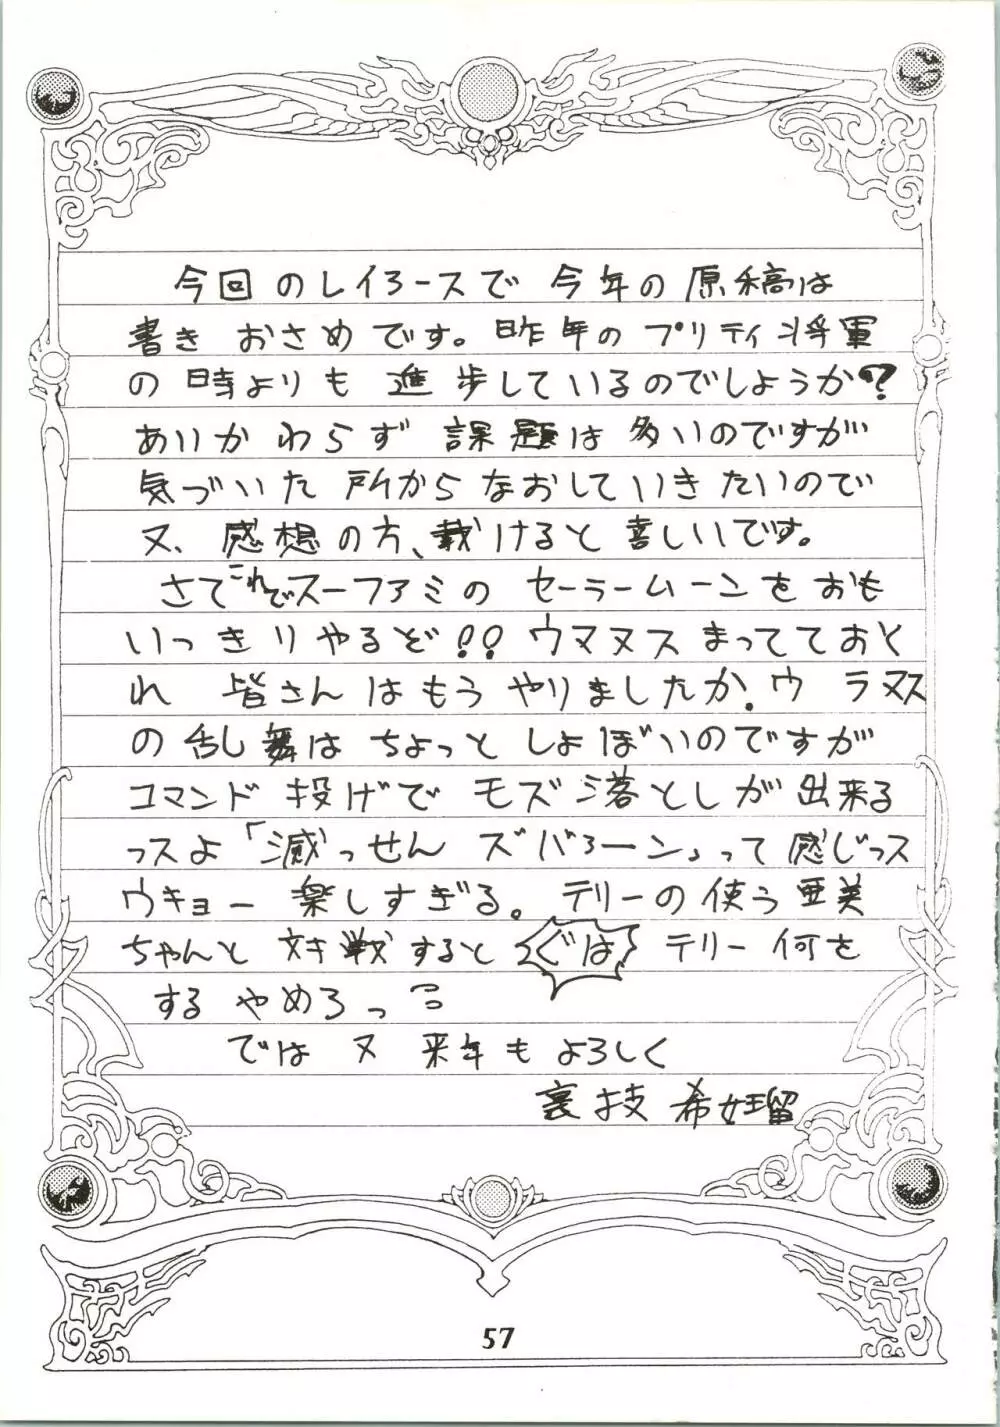 今回のレイろースで今年の原稿は
書きおさめです。昨年のプリティ将軍
の時よりも進歩しているのでしょうか?
あいかわらず課題は多いのですが
気づいた所からなおしていきたいので
又、感想の方、載けると喜しいです。
さてこれでスーファミのセーラームーンをおも
いっきりやるぞ!!ウマヌスまってておく
れ 皆さんはもうやりましたか.ウラヌス
の乱舞はちょっとしょぼいのですが
コマンド投げでモズ落としが出来る
っスよ「滅っせんズバろーン」って感じっス
ウキョー楽しすぎる。テリーの使う亜美
ちゃんと対戦すると ぐは テリー何を
するやめろっ
では又来年もよろしく
裏技 希女王留
57